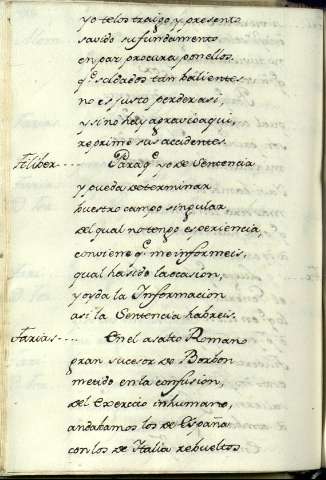 yo telos traigo, y presento
savido su fundamento
en paz procura ponellos.
q.e soldados tan balientes
no es justo perder asi,
y si no hay agravio aqui,
reprimo sus accidentes.
Filiber.... Para q.e yo de Sentencia
y pueda determinar
buestro campo singular
del qual no tengo esperiencia,
conviene q.e me informeis,
qual ha sido la ocasion,
y oyda la Informacion
asi la Sentencia habreis.
Farias.... En el asalto Romano
gran sucesor de Borbon
metido en la confusion,
del Exercito inhumano,
andabamos los de España
con los de Italia rebueltos